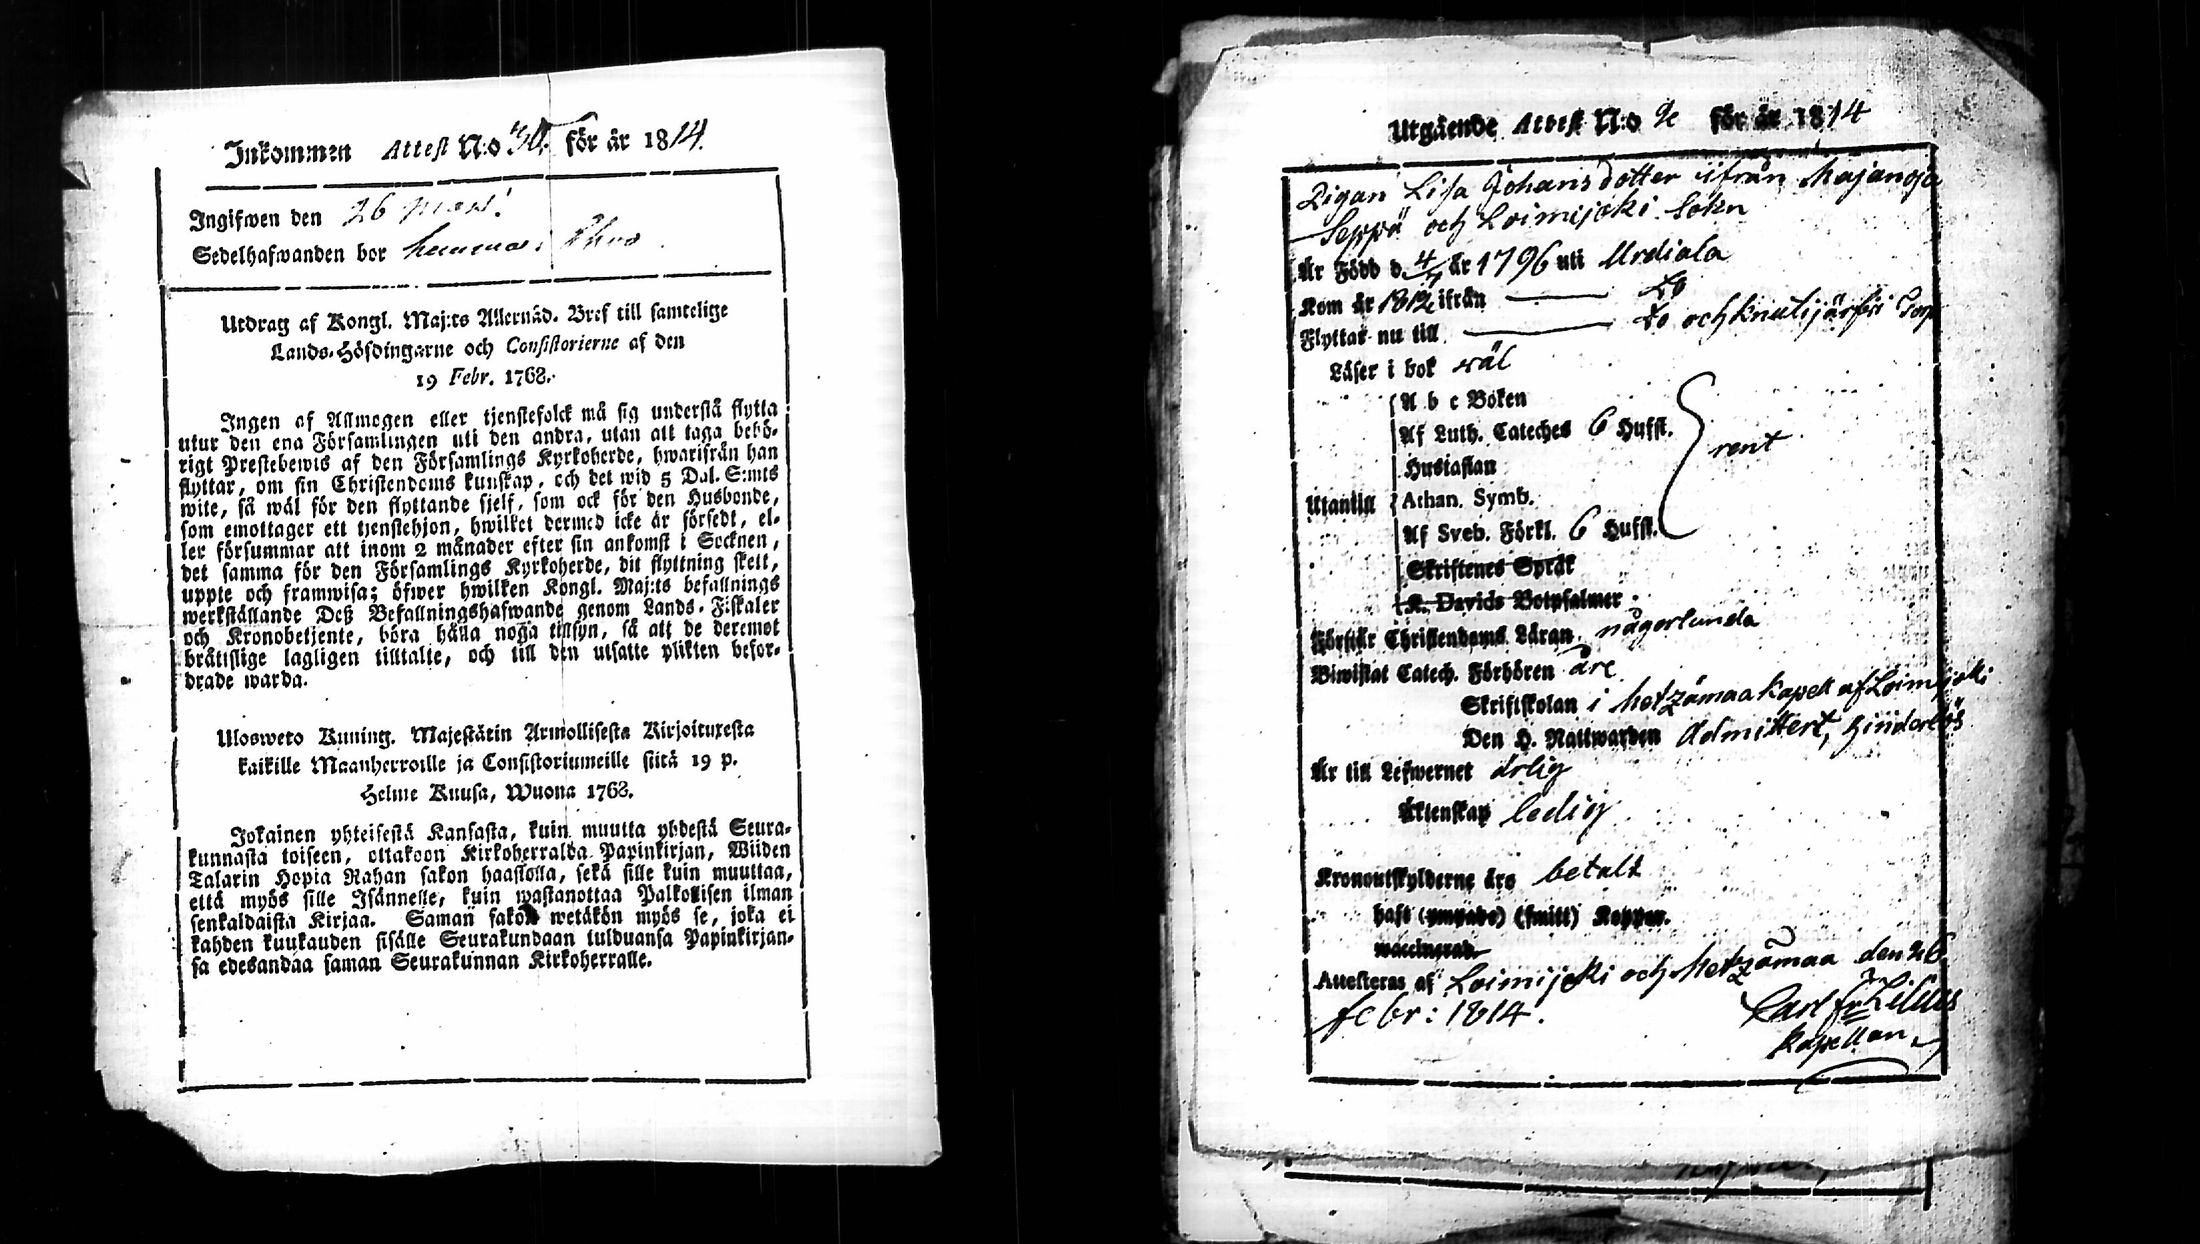 Inkommen Attest N:o 30. för år 1814.
Ingifwen den 26 mars!
Sedelhafwanden bor hemma i
Utdrag af Kongl. Maj:ts Allernåd. Bref till samtelige
Lands-Höfdingarne och Consistorierne af den
19 Febr. 1768.
Ingen af Allmogen eller tjenstefolck må sig understå flytta
utur den ena Församlingen uti den andra, utan att taga behö-
rigt Prestebewis af den Församlings Kyrkoherde, hwarifrån han
flyttar, om sin Christendoms kunskap, och det wid 5 Dal. S:mts
wite, så wäl för den flyttande sjelf, som ock för den Husbonde,
som emottager ett tjenstehjon, hwilket dermed icke är försedt, el-
ler försummar att inom 2 månader efter sin ankomst i Socknen,
det samma för den Församlings Kyrkoherde, dit flyttning skett,
uppte och framwisa; öfwer hwilken Kongl. Maj:ts befallnings
werkställande Deß Befallningshafwande genom Lands-Fiskaler
och Kronobetjente, böra hålla noga tillsyn, så att de deremot
bråttslige lagligen tilltalte, och till den utsatte plikten befor-
drade warda.
Ulosweto Kuning. Majestätin Armollisesta Kirjoituxesta
kaikille Maanherroille ja Consistoriumeille siitä 19 p.
Helme Kuusa, Wuona 1768.
Jokainen yhteisestä Kansasta, kuin muutta yhdestä Seura-
kunnasta toiseen, ottakoon Kirkoherralda Papinkirjan, Wiiden
Talarin Hopia Rahan sakon haastolla, sekä sille kuin muuttaa,
että myös sille Isännelle, kuin wastanottaa Palkollisen ilman
senkaldaista Kirjaa. Saman sakon wetäkön myös se, joka ei
kahden kuukauden sisälle Seurakundaan tulduansa Papinkirjan-
sa edesandaa saman Seurakunnan Kirkoherralle.
Utgående Attest N:o 9 för år 1814
Pigan Lisa Johansdotter ifrån Majanoja
Seppä och Loimijoki Sokn
Är Född d. 4/7 år 1796 uti Urdiala
Kom år 1812 ifrån Do
Flyttar nu till Do och Knutijärfvi
Läser i bok wäl
A b c Boken
Af Luth. Cateches 6 Hufst.
Hustaflan
rent
Utantill Athan. Symb.
Af Sveb. Förkl. 6 Hufst.
Skriftenes Språk
K. Davids Botpsalmer
Förstår Christendoms Läran någorlunda
Biwistat Catech. Förhören åre
Skriftskolan i Metzämaa kapell af Loimijoki
Den H. Nattwarden Admittert, hinderlös
Är till Lefwernet ärlig
Äktenskap ledig
Kronoutskylderne äro betalt
haft (ympade) (smitt) Koppor.
waccinerad
Attesteras af Loimijoki och Metzämaa den 26
febr: 1814. Carl Fr Lilius
Kapellan